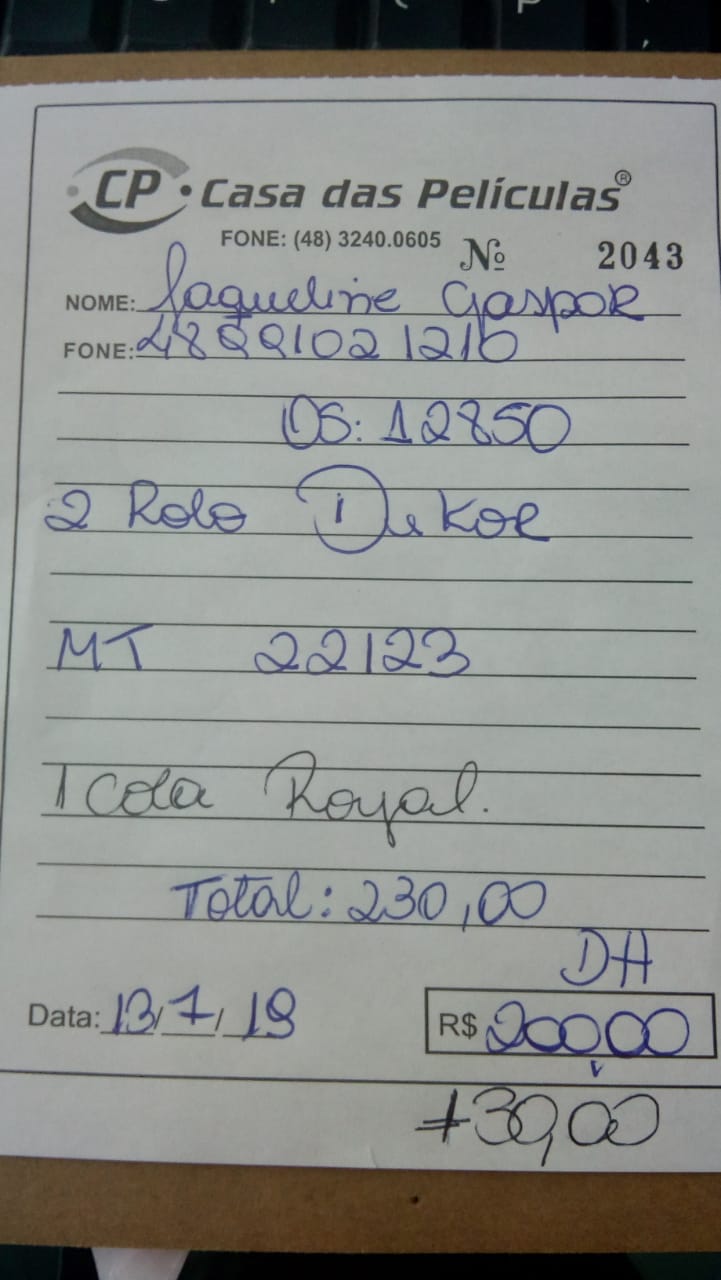 CP • Casa das Películas®
FONE: (48) 3240.0605 Nº 2043
NOME: Jaqueline Gaspar
FONE: 48 991021216
OS: 12850
2 Rolo Dekor
MT 22123
1 Cola Royal.
Total: 230,00
DH
Data: 13/7/19 R$ 200,00
+30,00